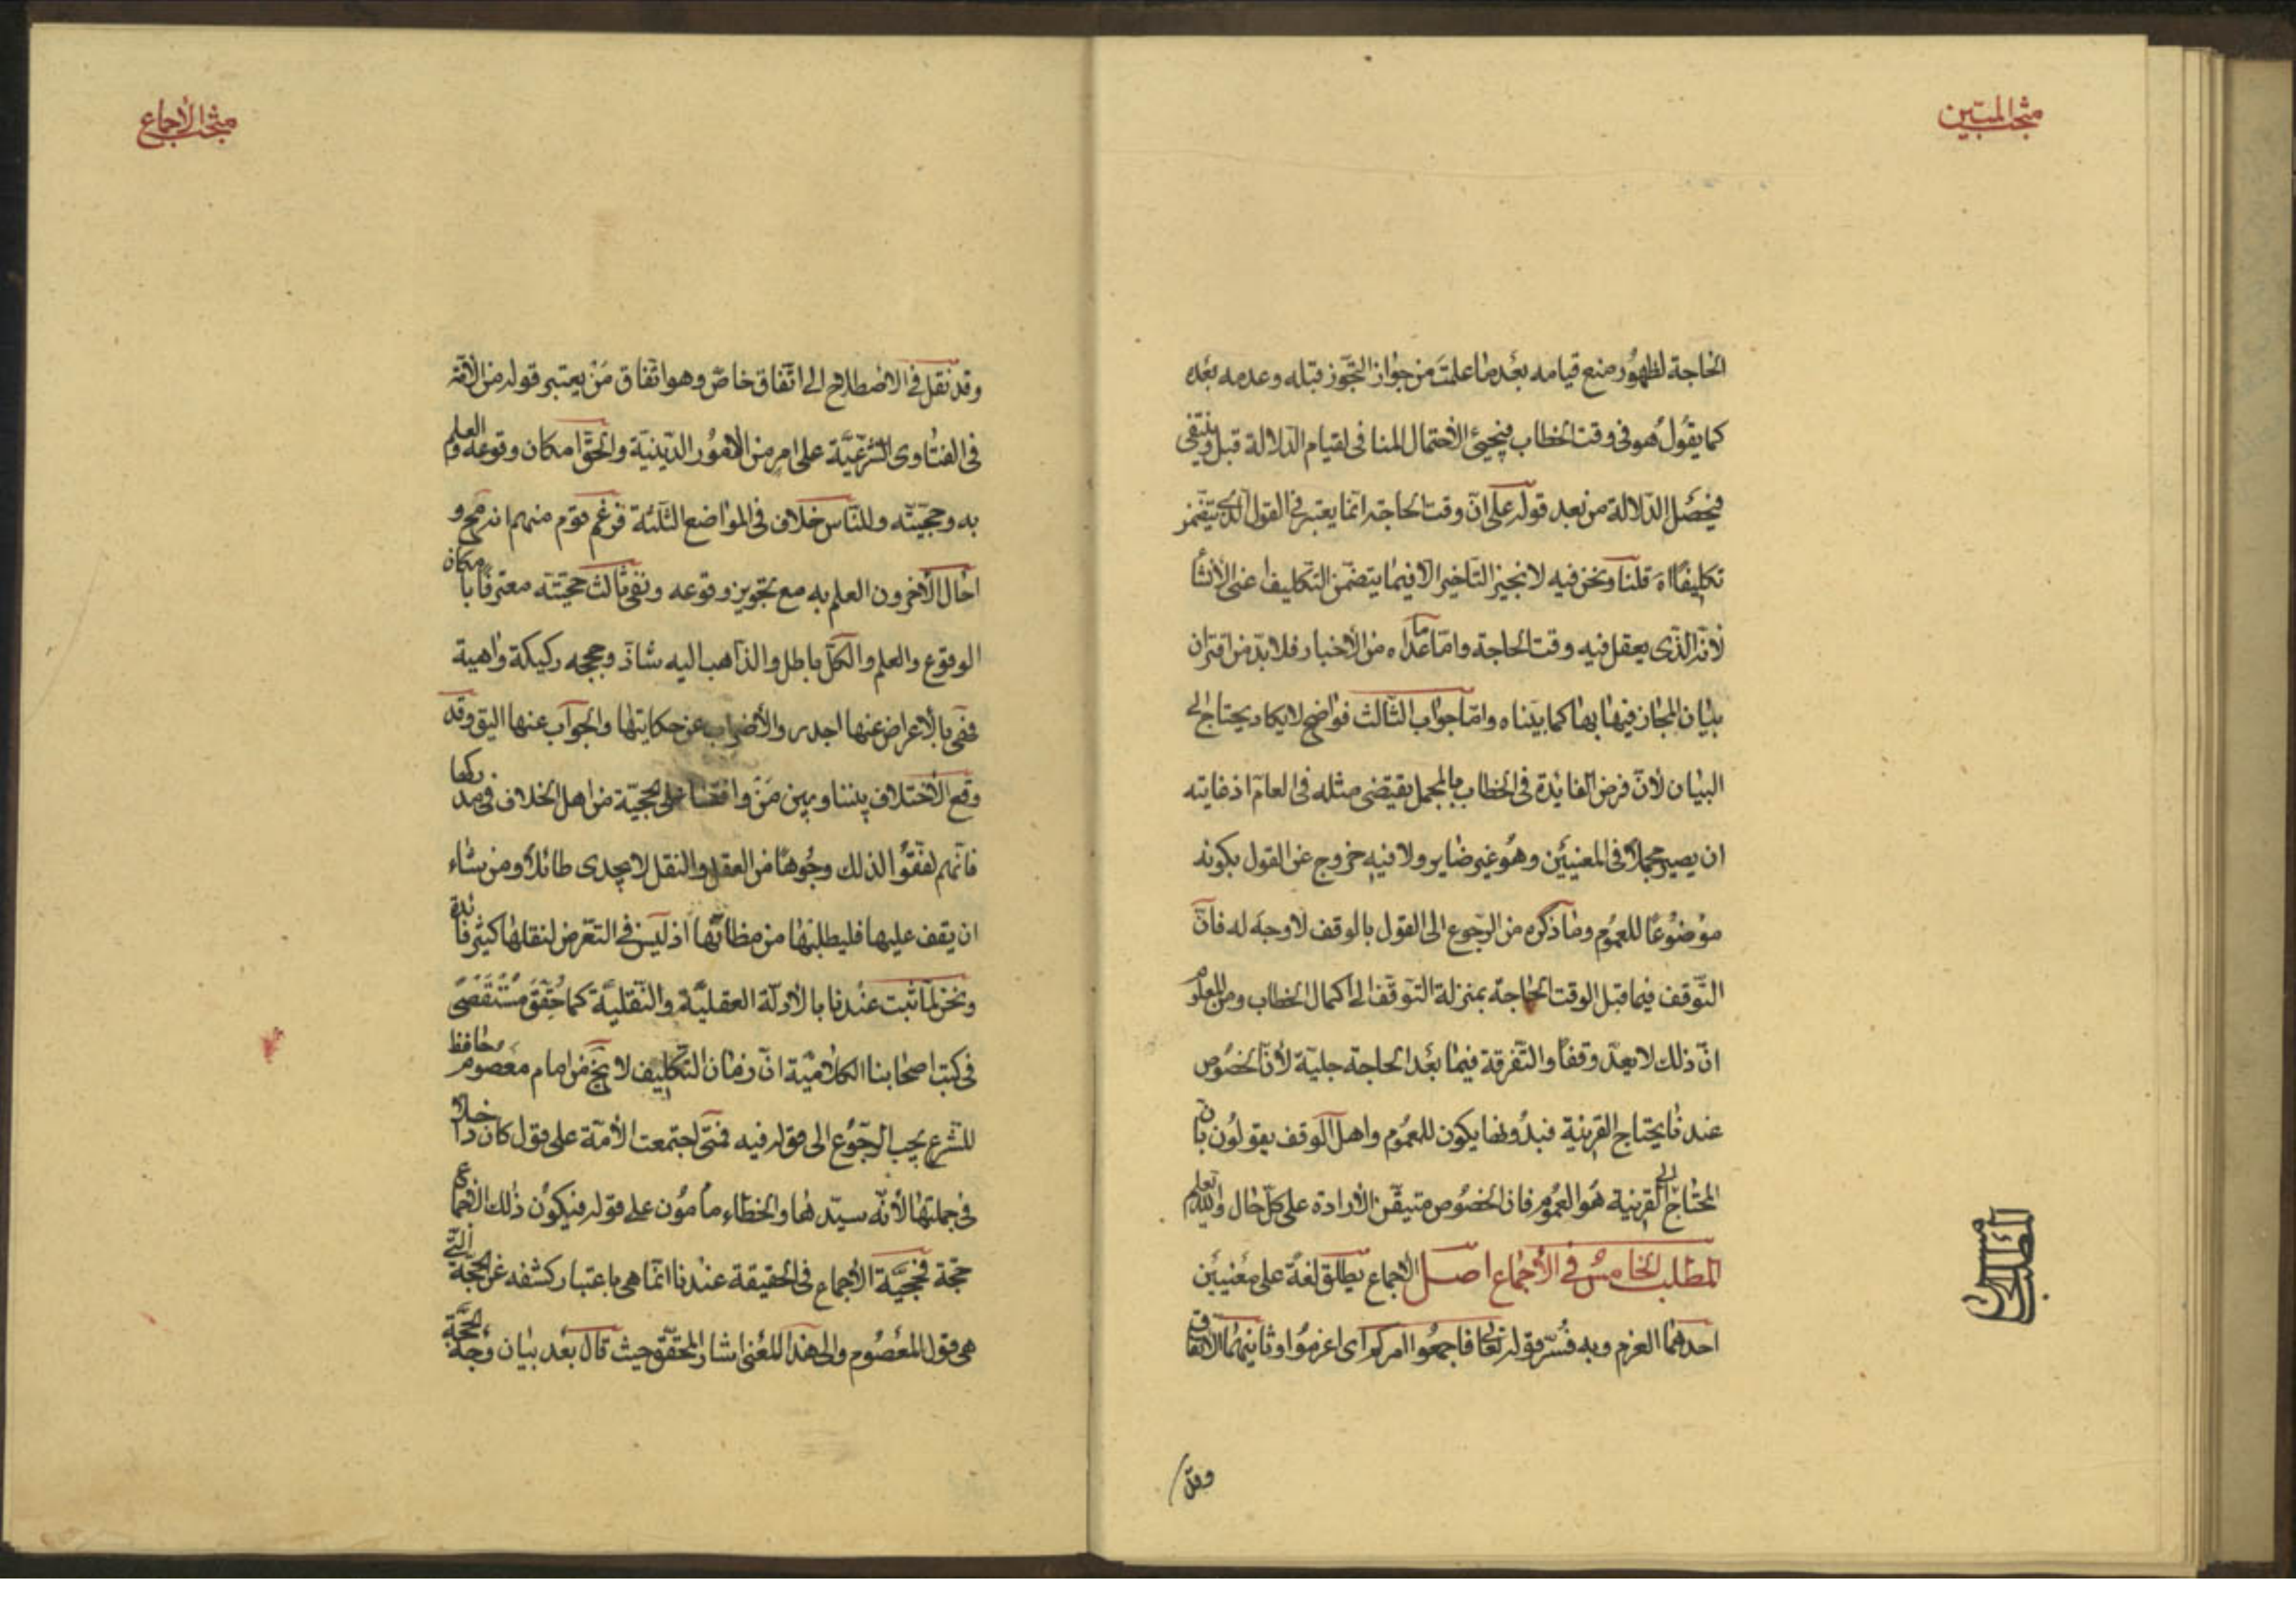 مبحث المبین
الحاجة لظهور منع قيامه بعد ما علمت من جواز التجوّز قبله وعدمه بعده
كما يقول هو فى وقت الخطاب فيجيئ الأحتمال المنافى لقيام الدلالة قبل وينتفى
فيحصل الدلالة من بعد قوله على انّ وقت الحاجة انما يعتبر فى القول الذى يتضمن
تكليفًا اه قلنا ونحن فيه لا نجيز التاخير الا فيما يتضمّن التكليف اعنى الأنشا
لأنه الذى يعقل فيه وقت الحاجة وامّا ما عداه من الأخبار فلا بدّ من اقتران
بيان المجاز فيها بها كما بيّناه وامّا جواب الثّالث فواضح لا يكاد يحتاج الى
البيان لأنّ فرض الفايدة فى الخطاب بالمجمل يقتضى مثله فى العامّ اذ غايته
ان يصير مجملا فى المعنيين وهو غير ضاير ولا فيه خروج عن القول بكونه
موضوعًا للعموم وما ذكره من الرّجوع الى القول بالوقف لا وجه له فانّ
التّوقف فيما قبل الوقت الحاجة بمنزلة التوقّف الى اكمال الخطاب ومن المعلوم
انّ ذلك لا يعدّ وقفًا والتّفرقة فيما بعد الحاجة جليّة لأنّ الخصوص
عندنا يحتاج القرينة فبدونها يكون للعموم واهل الوقف يقولون بانّ
المحتاج الى القرينة هو العموم فان الخصوص متيقّن الأرادة على كلّ حال والله تعلم
المطلب الخامس فى الأجماع اصل الأجماع يطلق لغةً على معنيين
احدهما العزم وبه فسّر قوله تعالى فاجمعوا امركم اى اعزموا وثانيهما الاتفاق
وقد
المطلب الخامس
مبحث الأجماع
وقد نقل فى الاصطلاح الى اتّفاق خاصّ وهو اتّفاق مَنْ يعتبر قوله من الأمّة
فى الفتاوى الشّرعيّة على امر من الامور الدّينيّة والحقّ امكان وقوعه والعلم
به وحجيّته وللنّاس خلاف فى المواضع الثلثة فزعم قوم منهم انه مح و
احال الأخرون العلم به مع تجويز وقوعه ونفى ثالث حجيّته معترفًا بامكان
الوقوع والعلم والكلّ باطل والذّاهب اليه شاذّ وحججه ركيكة واهية
فهى بالأعراض عنها اجدر والأضراب عن حكايتها والجواب عنها اليق وقد
وقع الأختلاف بيننا وبين مَنْ وافقنا على الحجيّة من اهل الخلاف فى مدركها
فانّهم لفّقوا لذلك وجُوهًا من العقل والنقل لا يجدى طائلًا ومن شاء
ان يقف عليها فليطلبها من مظانّها اذ ليس فى التعّرض لنقلها كثير فائدة
ونحن لمّا ثبت عندنا بالأدلّة العقليّة والنّقليّة كما حُقِّقَ مُسْتَقصًى
فى كتب اصحابنا الكلاميّة انّ زمان التكليف لا يخ من امام معصوم حافظ
للشّرع يجب الرجوع الى قوله فيه فمتى اجتمعت الأمّة على قول كان داخلا
فى جملتها لأنّه سيّدها والخطاء مأمُون على قوله فيكون ذلك الاجماع
حجّة فحجيّة الأجماع فى الحقيقة عندنا انّما هى باعتبار كشفه عن الحجّة الّتى
هى قول المعصوم والى هذا المعنى اشار المحقّق حيث قال بعد بيان وجه الحجّة